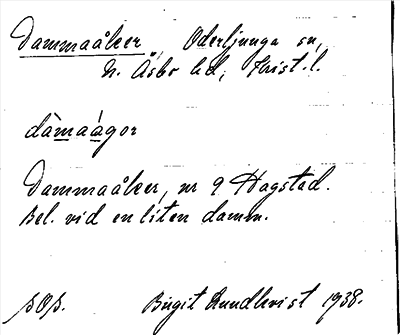 Dammaåker, Oderljunga sn,
N. Åsbo hd, Krist. l.
dàmaágor
Dammaåker, nr 9 Hagstad.
Bel. vid en liten damm.
Birgit Rundkvist 1938.